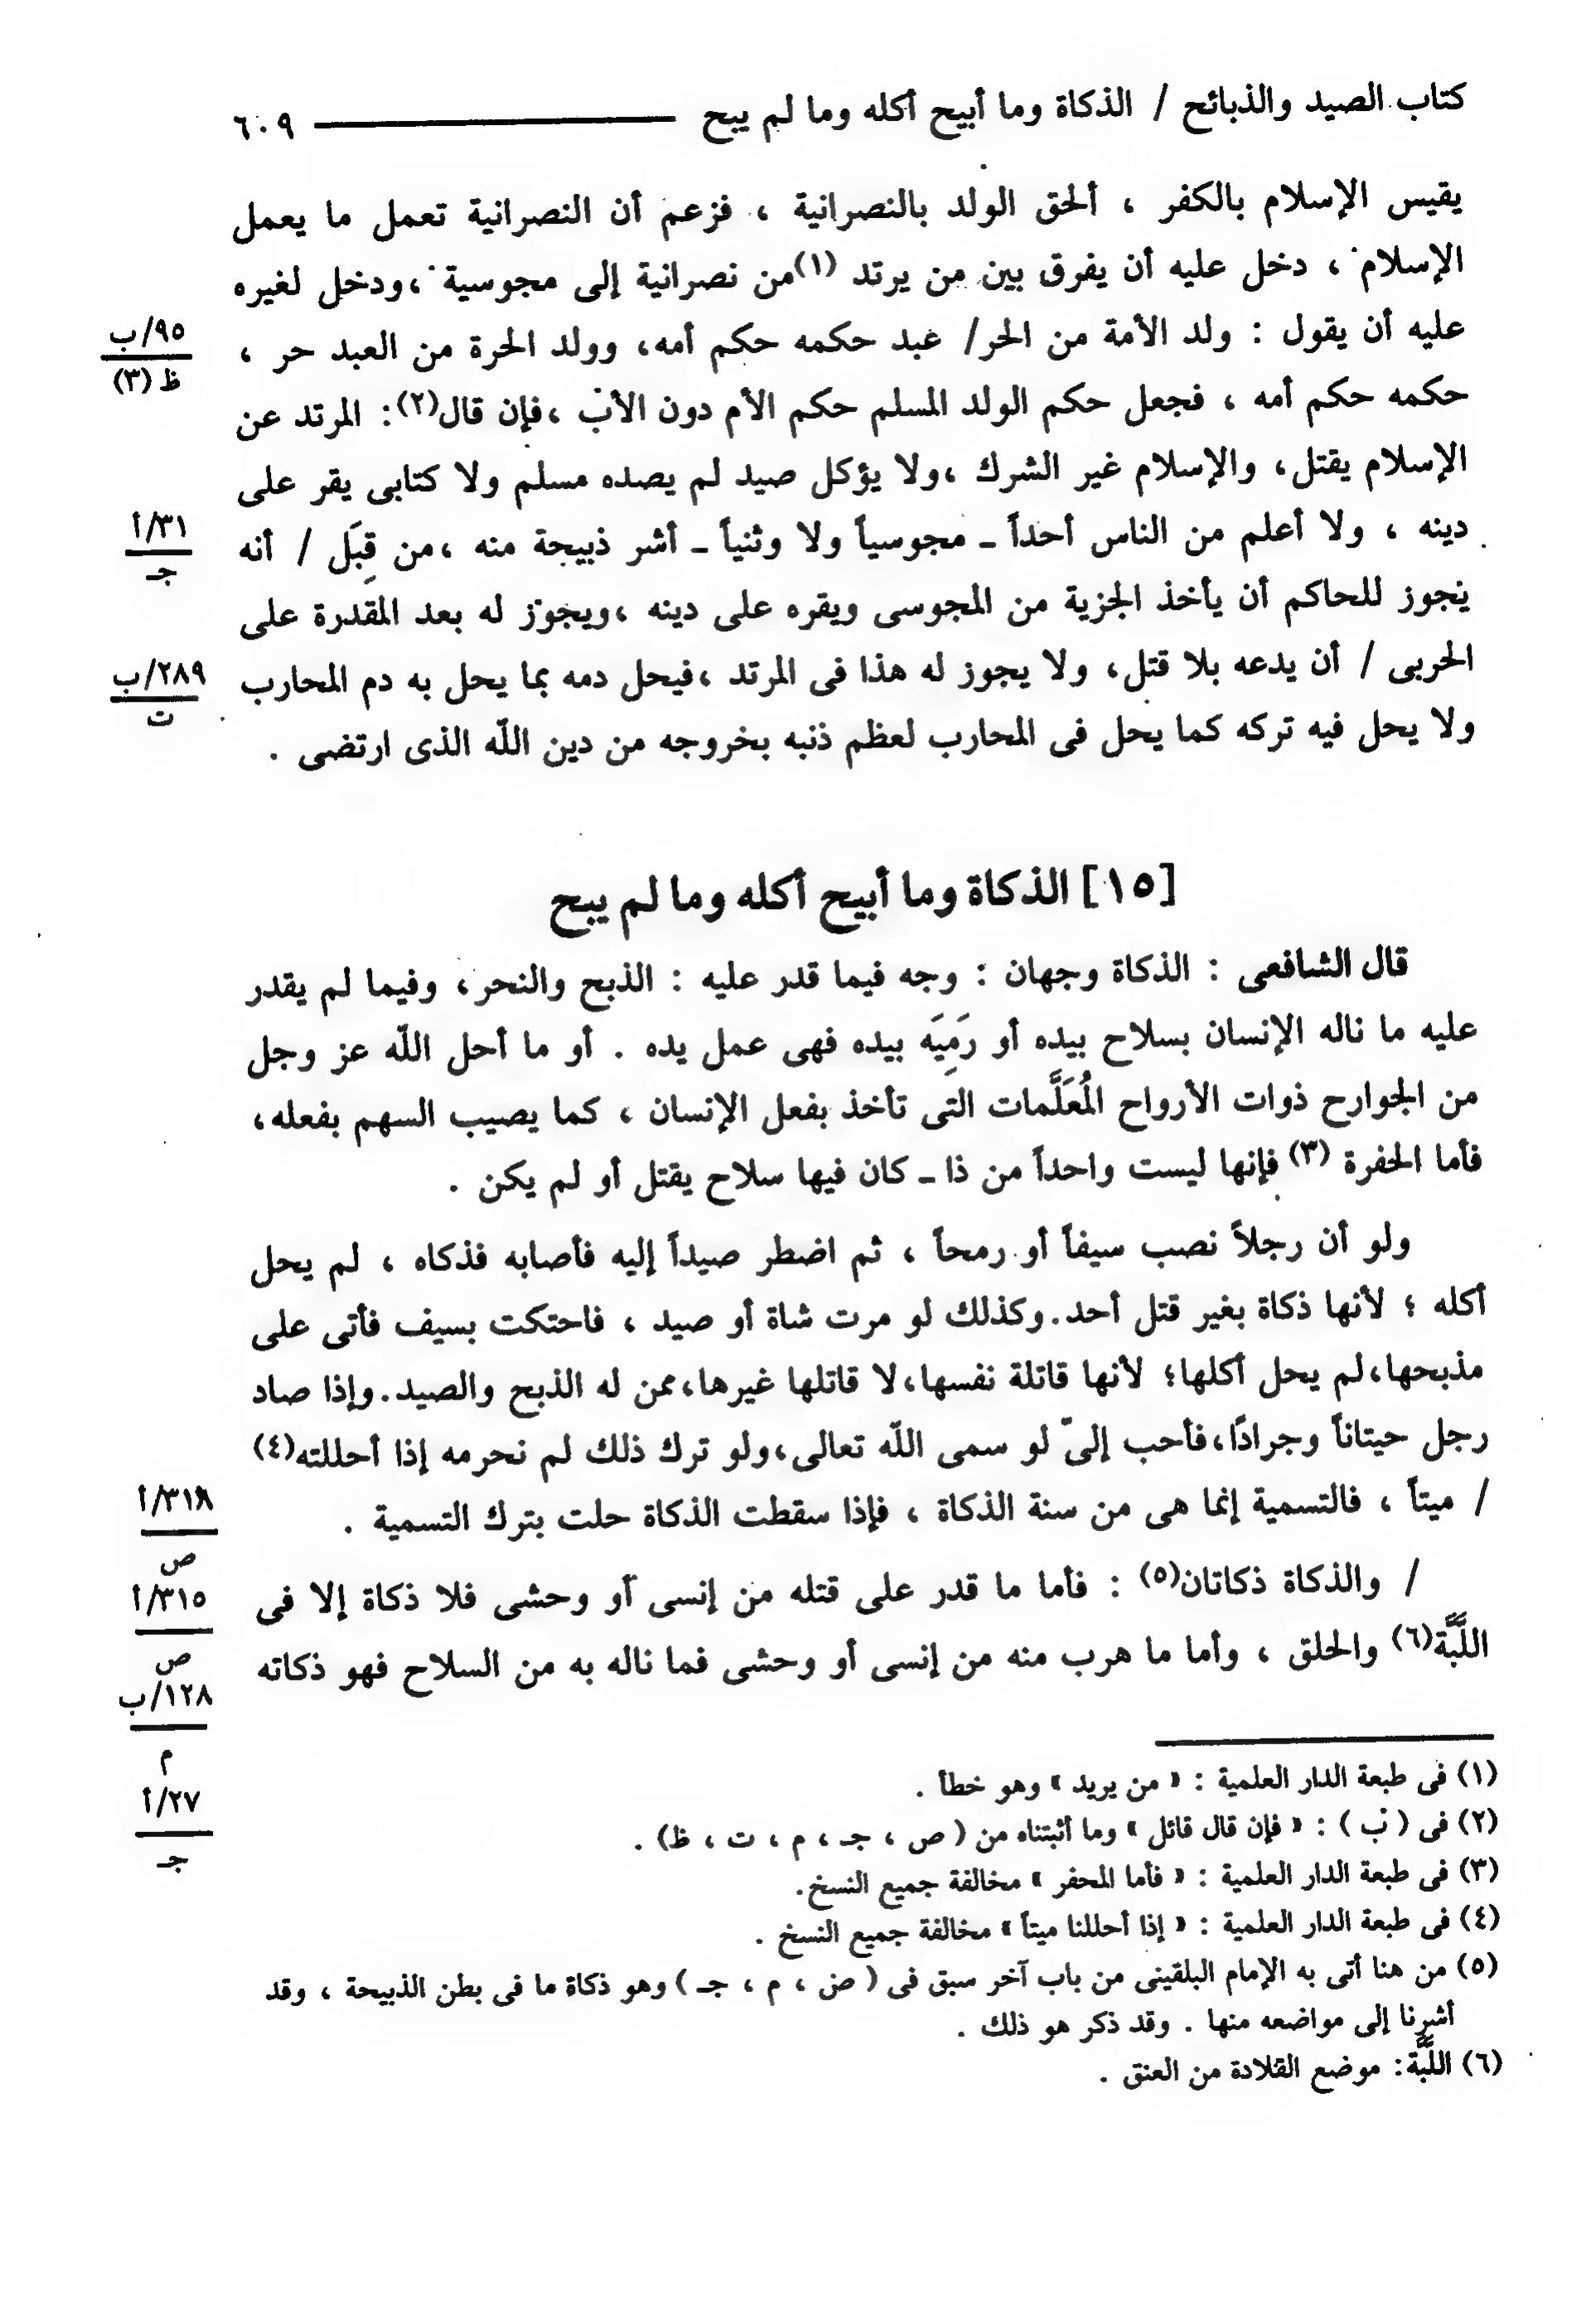 كتاب الصيد والذبائح / الذكاة وما أبيح أكله وما لم يبح ــــــ ٦٠٩
يقيس الإسلام بالكفر ، ألحق الولد بالنصرانية ، فزعم أن النصرانية تعمل ما يعمل
الإسلام ، دخل عليه أن يفرق بين من يرتد (١)من نصرانية إلى مجوسية ،ودخل لغيره
عليه أن يقول : ولد الأمة من الحر/ عبد حكمه حكم أمه، وولد الحرة من العبد حر ،
٩٥/ب
ظ (٣)
حكمه حكم أمه ، فجعل حكم الولد المسلم حكم الأم دون الأب ،فإن قال(٢): المرتد عن
الإسلام يقتل، والإسلام غير الشرك ،ولا يؤكل صيد لم يصده مسلم ولا كتابى يقر على
دينه ، ولا أعلم من الناس أحداً ـ مجوسياً ولا وثنياً ـ أشر ذبيحة منه ،من قِبَلِ / أنه
٣١/أ
جـ
يجوز للحاكم أن يأخذ الجزية من المجوسى ويقره على دينه ،ويجوز له بعد المقدرة على
الحربى / أن يدعه بلا قتل، ولا يجوز له هذا فى المرتد ،فيحل دمه بما يحل به دم المحارب
٢٨٩/ب
ت
ولا يحل فيه تركه كما يحل فى المحارب لعظم ذنبه بخروجه من دين اللّه الذى ارتضى .
[١٥] الذكاة وما أبيح أكله وما لم يبح
قال الشافعى : الذكاة وجهان : وجه فيما قدر عليه : الذبح والنحر، وفيما لم يقدر
عليه ما ناله الإنسان بسلاح بيده أو رَمِيَه بيده فهى عمل يده . أو ما أحل اللّه عز وجل
من الجوارح ذوات الأرواح المُعَلَّمات التى تأخذ بفعل الإنسان ، كما يصيب السهم بفعله،
فأما الحفرة (٣) فإنها ليست واحداً من ذا ـ كان فيها سلاح يقتل أو لم يكن .
ولو أن رجلاً نصب سيفاً أو رمحاً ، ثم اضطر صيداً إليه فأصابه فذكاه ، لم يحل
أكله ؛ لأنها ذكاة بغير قتل أحد.وكذلك لو مرت شاة أو صيد ، فاحتكت بسيف فأتى على
مذبحها،لم يحل أكلها؛ لأنها قاتلة نفسها،لا قاتلها غيرها،ممن له الذبح والصيد.وإذا صاد
رجل حيتاناً وجرادًا،فأحب إلىّ لو سمى اللّه تعالى،ولو ترك ذلك لم نحرمه إذا أحللته(٤)
/ ميتاً ، فالتسمية إنما هى من سنة الذكاة ، فإذا سقطت الذكاة حلت بترك التسمية .
٣١٨/أ
ص
/ والذكاة ذكاتان(٥) : فأما ما قدر على قتله من إنسى أو وحشى فلا ذكاة إلا فى
٣١٥/أ
ص
اللَّبَّة(٦) والحلق ، وأما ما هرب منه من إنسى أو وحشى فما ناله به من السلاح فهو ذكاته
١٢٨/ب
م
٢٧/أ
جـ
(١) فى طبعة الدار العلمية : « من يريد » وهو خطأ .
(٢) فى ( ب ) : « فإن قال قائل » وما أثبتناه من ( ص ، جـ ، م ، ت ، ظ) .
(٣) فى طبعة الدار العلمية : « فأما المحفر » مخالفة جميع النسخ.
(٤) فى طبعة الدار العلمية : « إذا أحللنا ميتاً » مخالفة جميع النسخ .
(٥) من هنا أتى به الإمام البلقينى من باب آخر سبق فى ( ص ، م ، جـ ) وهو ذكاة ما فى بطن الذبيحة ، وقد
أشرنا إلى مواضعه منها . وقد ذكر هو ذلك .
(٦) اللَّبَّة: موضع القلادة من العنق .